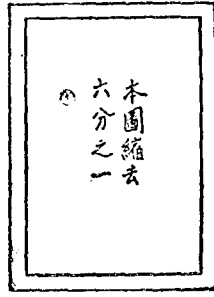 本圖縮去
六分之一